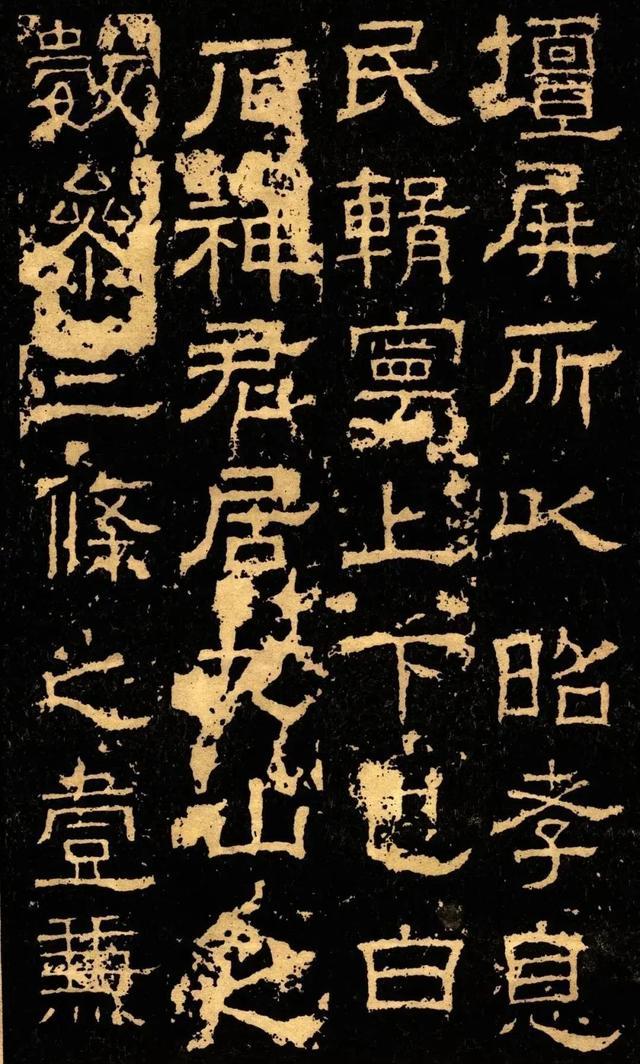 壇屏所以昭孝息
民輯寧上下也白
石神君居九山之
數參三條之壹兼